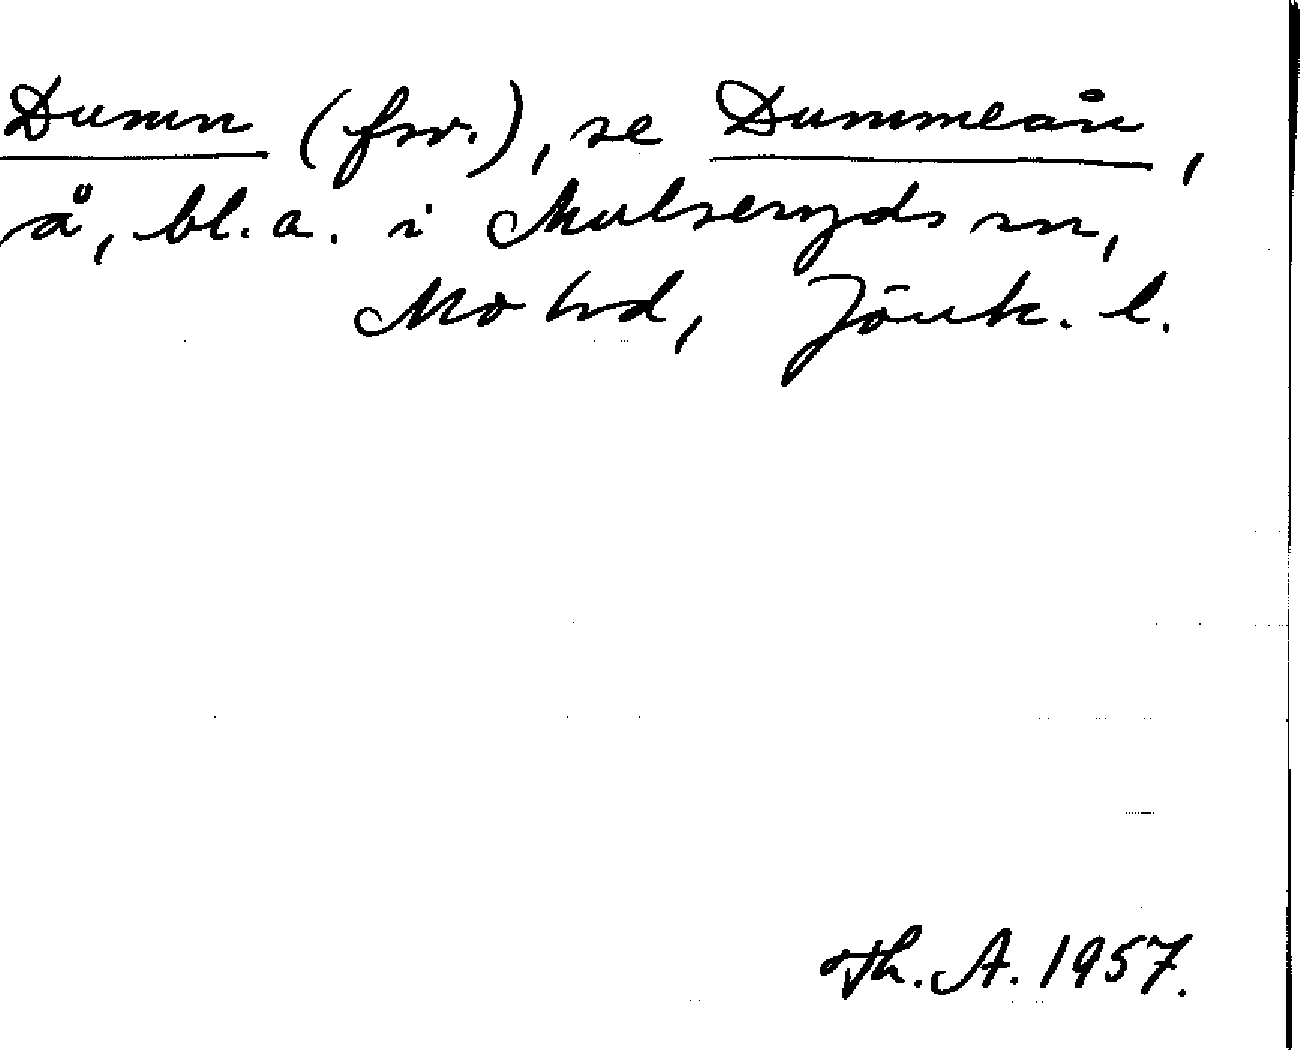 Dumn (fsv.), se Dummeån,
å, bl.a. i Mulseryds sn,
Mo hd, Jönk. l.
Th. A. 1957.